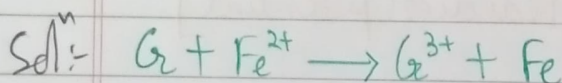 Solⁿ:- Cr + Fe²⁺ ⟶ Cr³⁺ + Fe